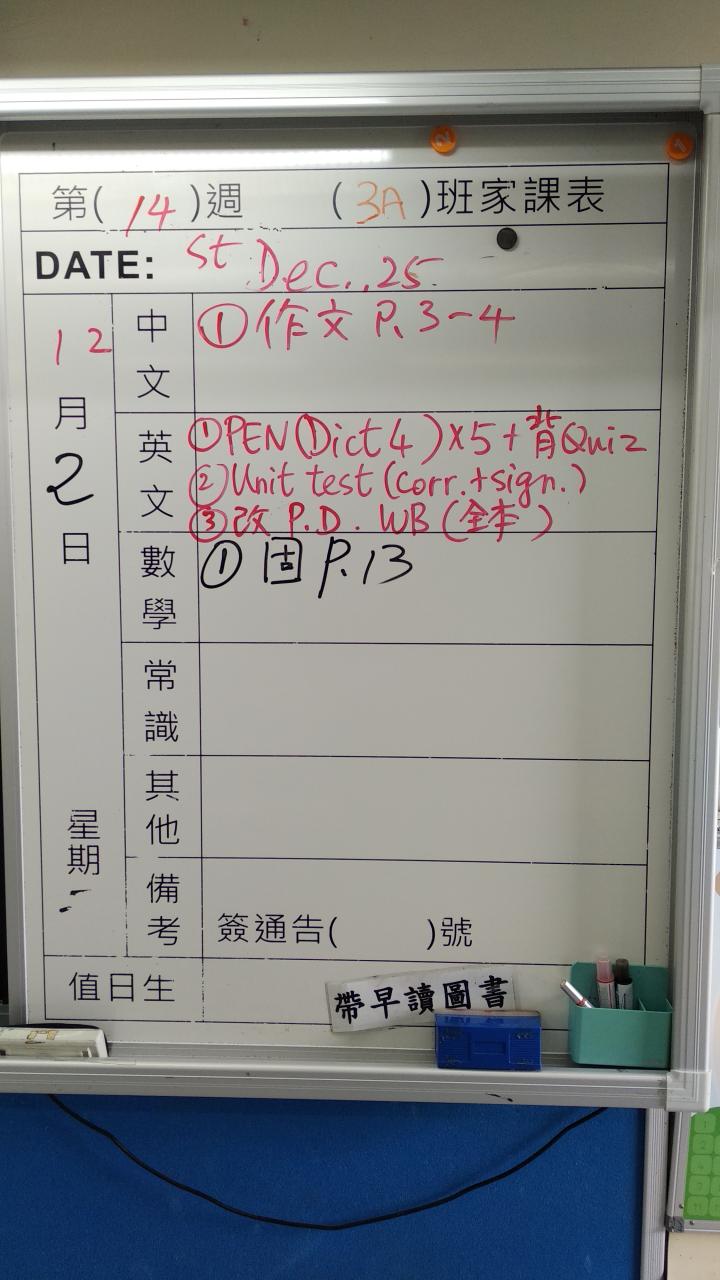 第(14)週 (3A)班家課表
DATE: st Dec.,25
12月2日
星期二
中文
①作文 P.3-4
英文
①PEN(Dict 4)X5+背Quiz
②Unit test (corr.+sign.)
③改 P.D. WB (全本)
數學
①固 P.13
常識
其他
備考
簽通告( )號
值日生
帶早讀圖書
2
1